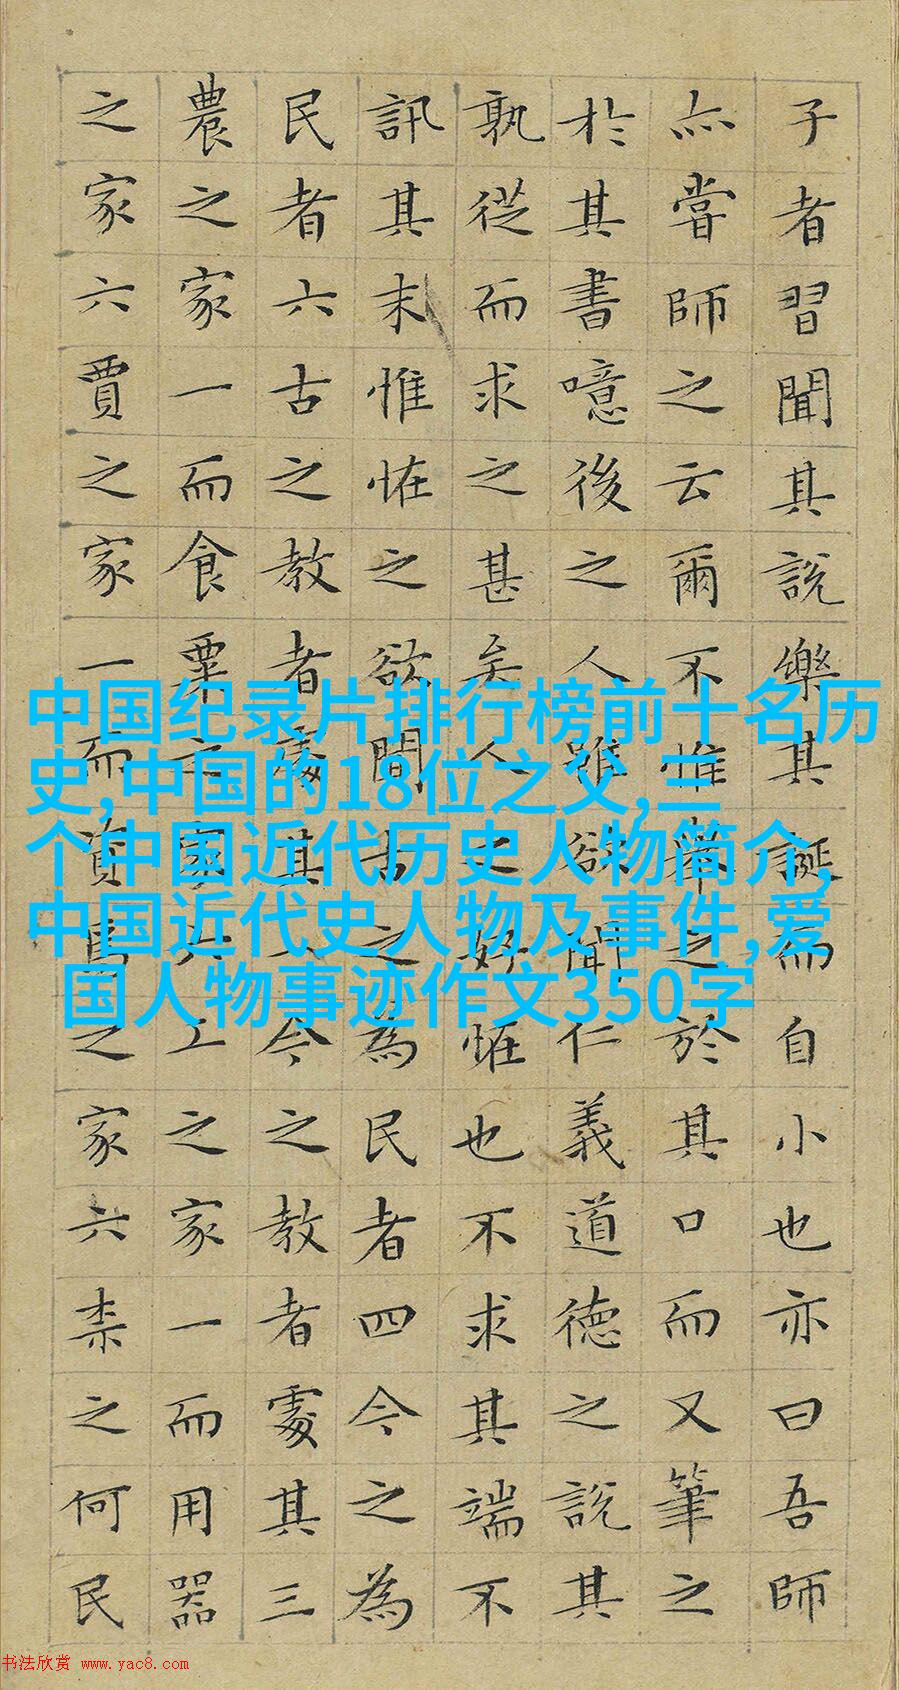 子者習聞其說樂其誕而自小也亦曰吾師
亦嘗師之云爾不惟舉之於其口而又筆之
於其書噫後之人雖欲聞仁義道德之說其
孰從而求之甚矣人之好恠也不求其端不
訊其末惟恠之欲聞古之為民者四今之為
民者六古之教者處其一今之教者處其三
農之家一而食粟之家六工之家一而用器
之家六賈之家一而資焉之家六柰之何民
中国纪录片排行榜前十名历
史,中国的18位之父,三
个中国近代历史人物简介,
中国近代史人物及事件,爱
国人物事迹作文350字
书法欣赏 www.yac8.com